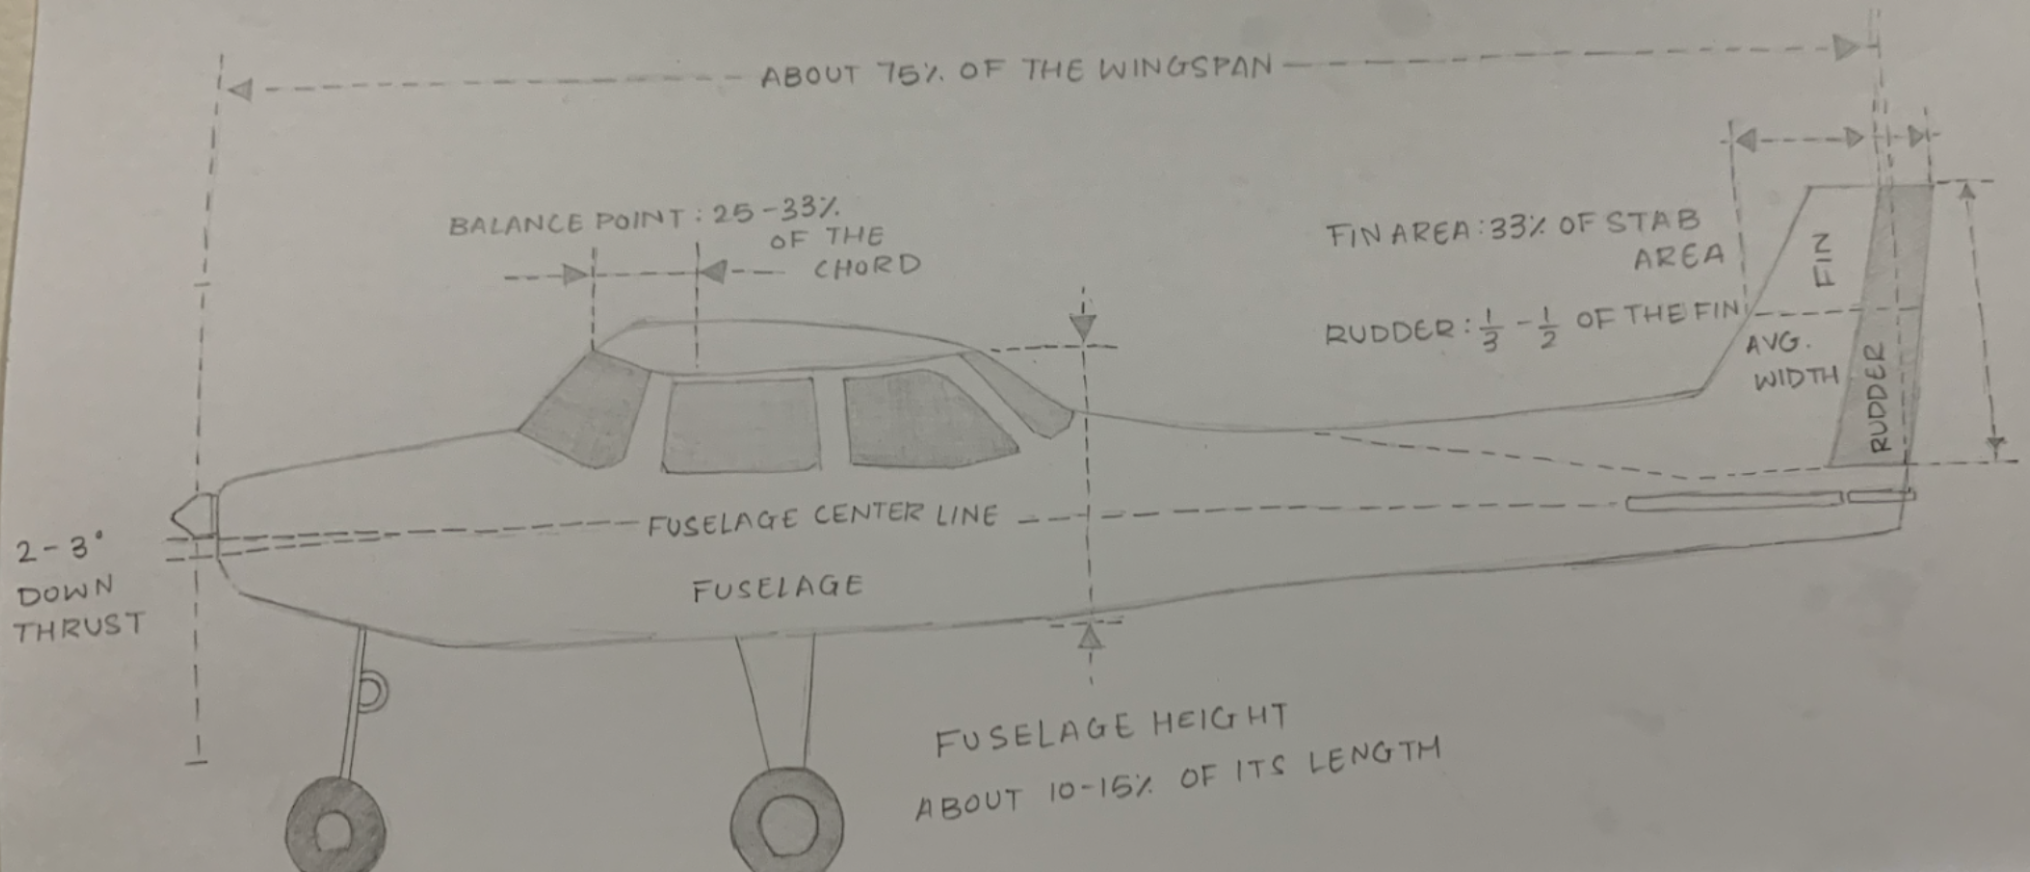 ABOUT 75% OF THE WINGSPAN
BALANCE POINT: 25-33%
OF THE
CHORD
FIN AREA: 33% OF STAB
AREA
RUDDER: 1/3 - 1/2 OF THE FIN
FIN
AVG.
WIDTH
RUDDER
FUSELAGE CENTER LINE
2-3°
DOWN
THRUST
FUSELAGE
FUSELAGE HEIGHT
ABOUT 10-15% OF ITS LENGTH